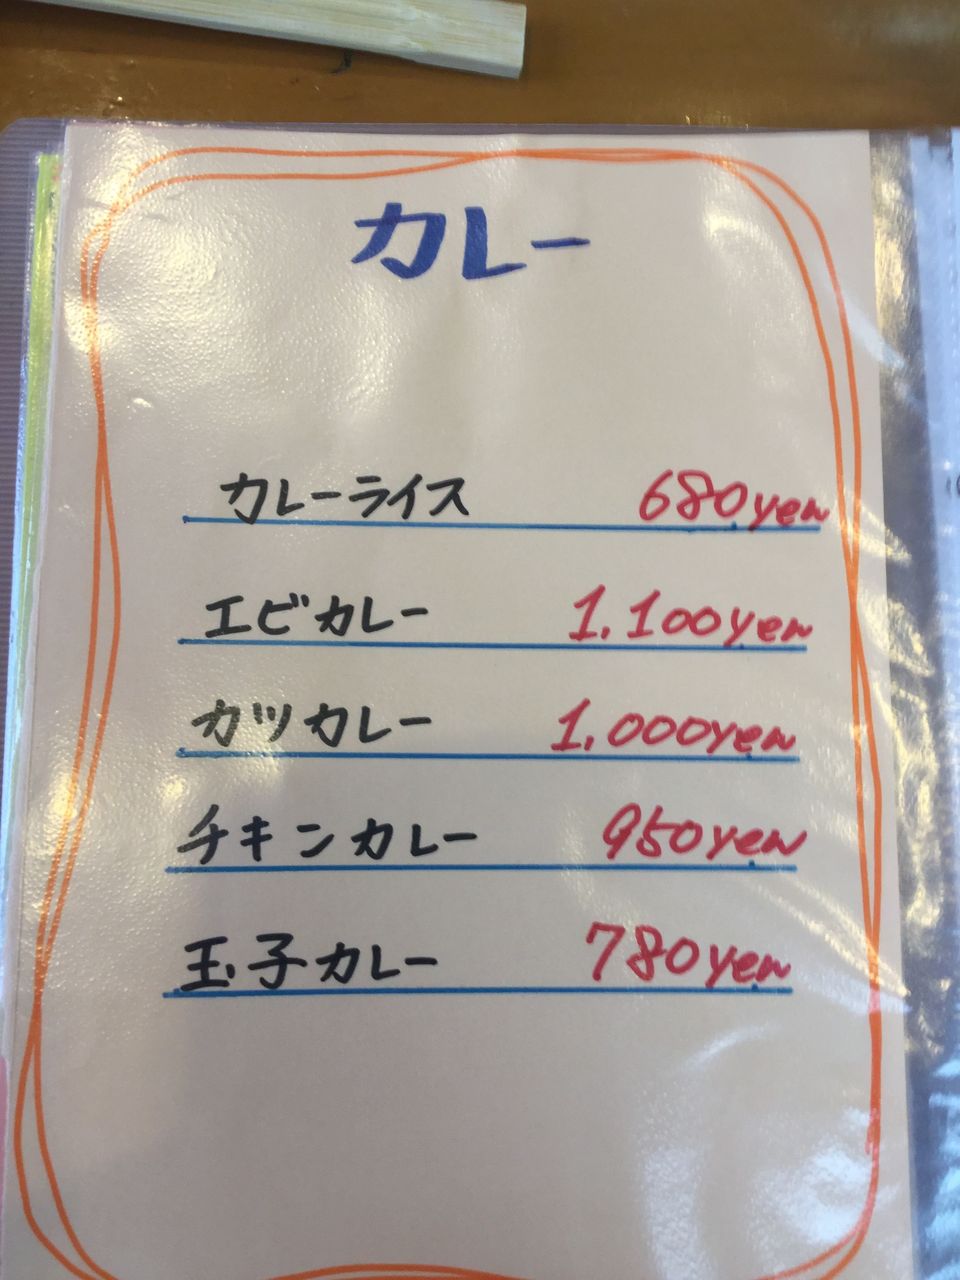 カレー
カレーライス 680yen
エビカレー 1,100yen
カツカレー 1,000yen
チキンカレー 950yen
玉子カレー 780yen